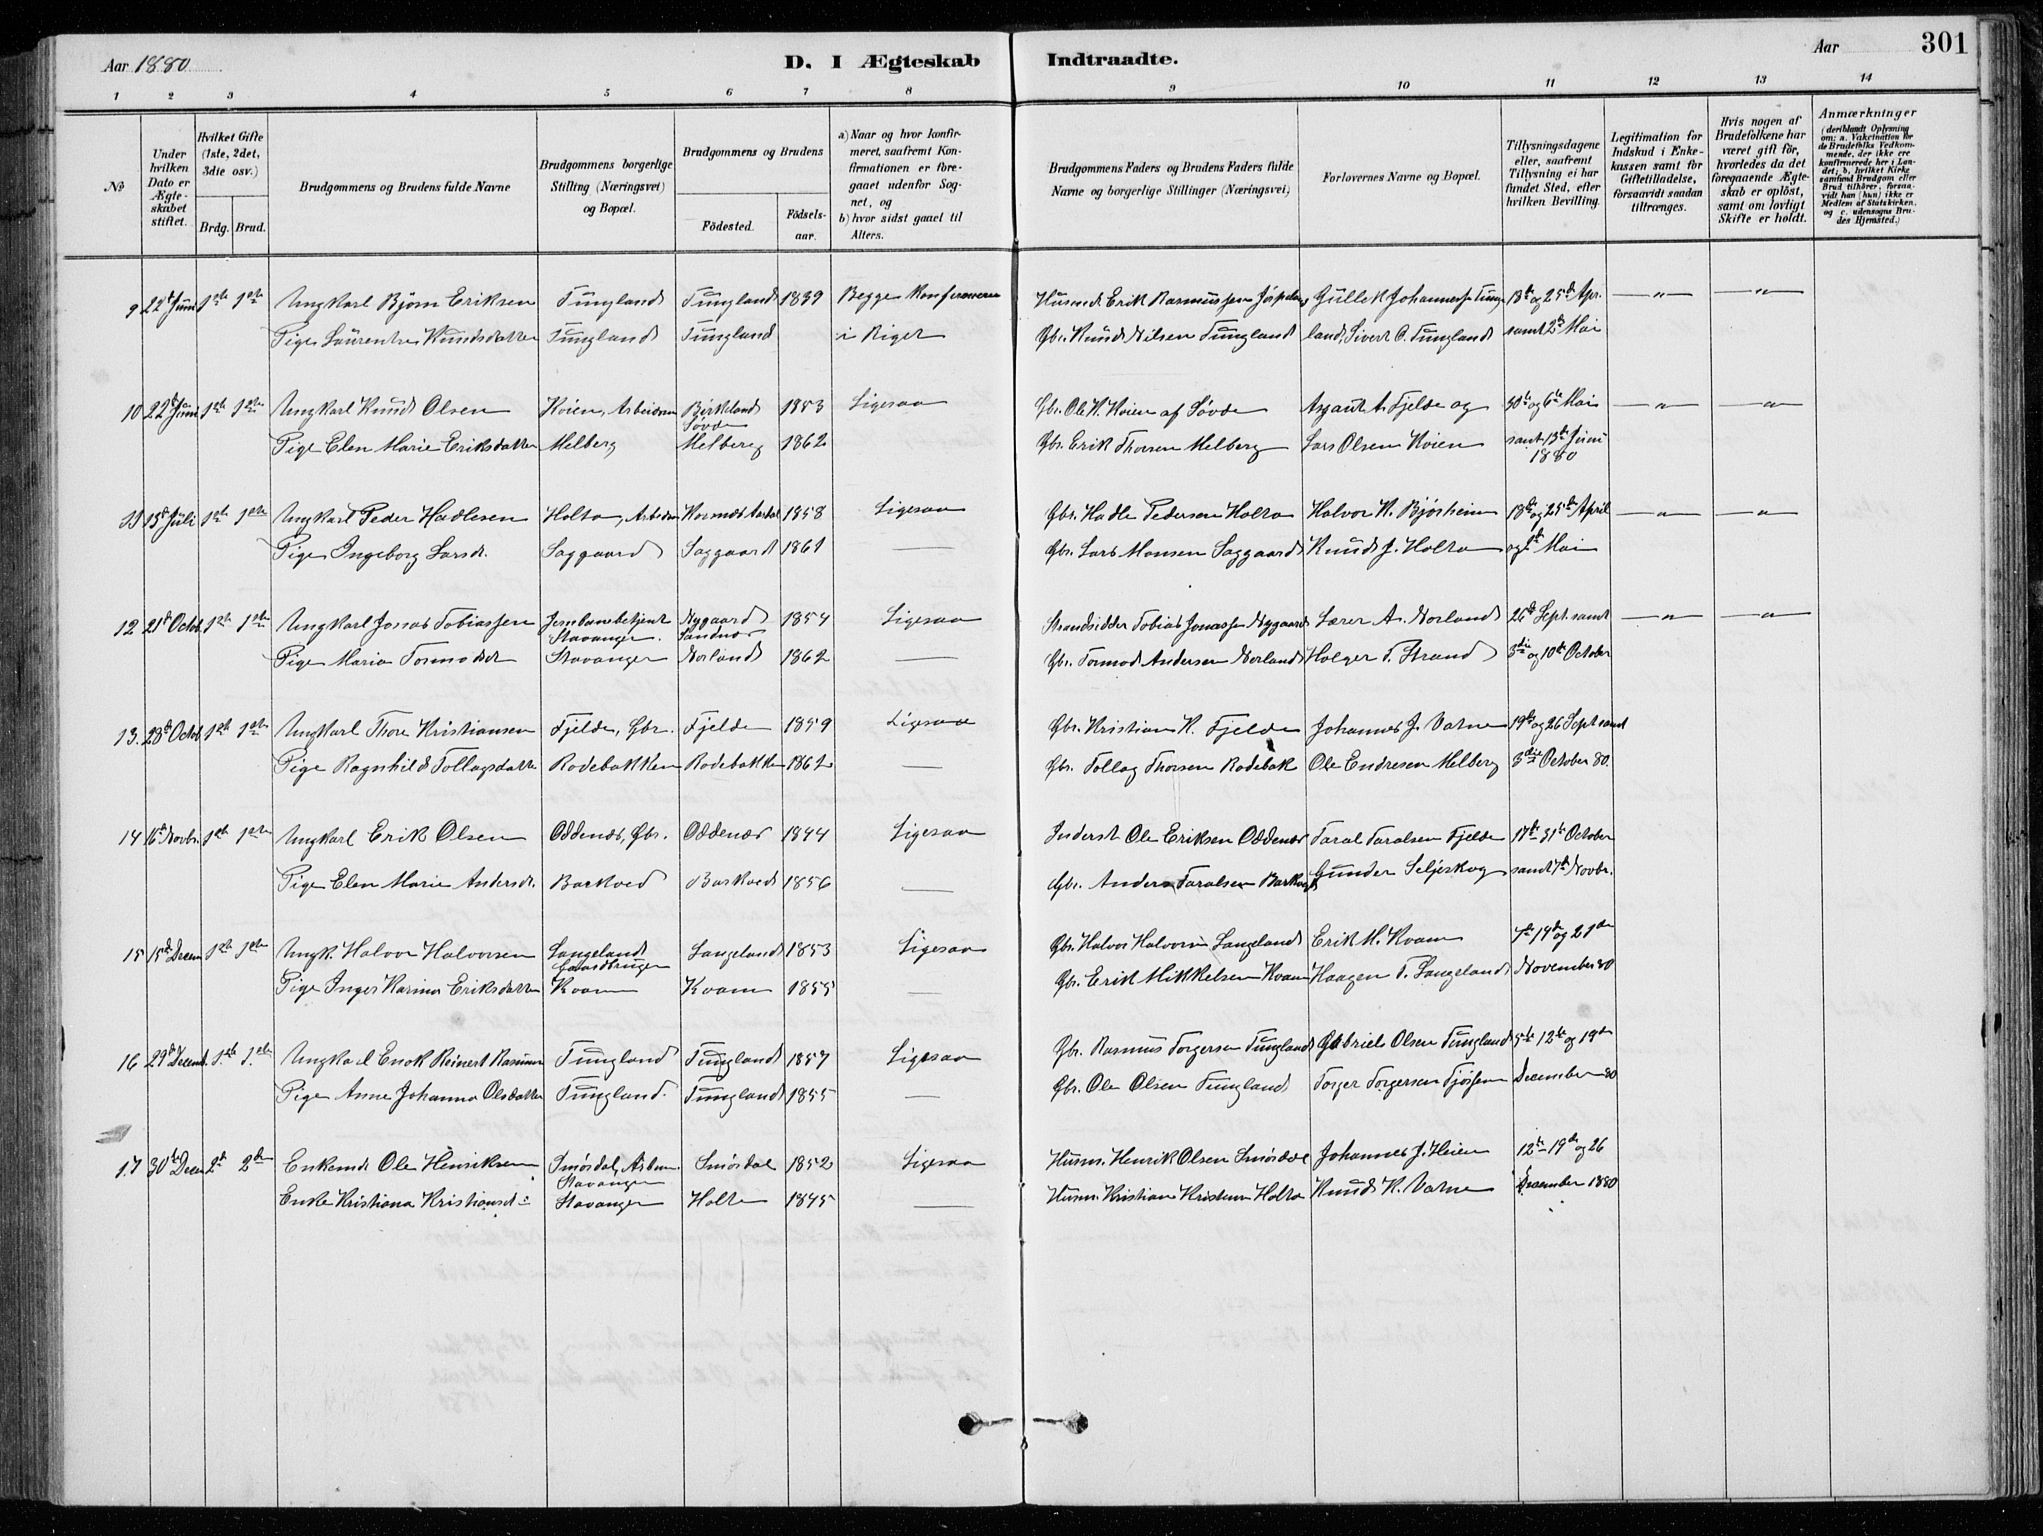 Aar 1880
D. I Ægteskab Indtraadte.
Aar
301
1 2 3 4 5 6 7 8 9 10 11 12 13 14
№
Under hvilken Dato er Ægteskabet stiftet.
Hvilket Gifte (1ste, 2det, 3die osv.)
Brdg. Brud.
Brudgommens og Brudens fulde Navne
Brudgommens borgerlige Stilling (Næringsvei) og Bopæl.
Brudgommens og Brudens
Födested.
Födselsaar.
a) Naar og hvor konfirmeret, saafremt Konfirmationen er foregaaet udenfor Sognet, og
b) hvor sidst gaaet til Alters.
Brudgommens Faders og Brudens Faders fulde Navne og borgerlige Stillinger (Næringsvei)
Forlovernes Navne og Bopæl.
Tillysningsdagene eller, saafremt Tillysning ei har fundet Sted, efter hvilken Bevilling.
Legitimation for Indskud i Enkekassen samt for Giftetilladelse, forsaavidt saadan tiltrænges.
Hvis nogen af Brudefolkene har været gift för, hvorledes da det foregaaende Ægteskab er oplöst, samt om lovligt Skifte er holdt.
Anmærkninger
(deriblandt Oplysning om: a. Vakcination for de Brudefolks Vedkommende, der ikke ere konfirmerede her i Landet; b. hvilket Kirkesamfund Brudgom eller Brud tilhörer, forsaavidt han (hun) ikke er Medlem af Statskirken, og c. udensogns Brudes Hjemsted.)
9 22d Juni 1ste 1ste Ungkarl Bjørn Eriksen Tungland Tungland 1839 Begge konfirmerede Husmd. Erik Rasmussen Gullek Johannessen Tung- 18de og 25de Apr. — " — — " —
Pige Laurentse Knudsdatter Tungland Tungland i Riget Gbr. Knud Nilsen Tungland land, Sivert O. Tungland samt 2den Mai
10 22d Juni 1ste 1ste Ungkarl Knud Olsen Kvien, Arbeidsm Birkeland 1853 Ligesaa Gbr. Ole K. Kvien af Søvde Asgaut A. Fjelde og 30te og 6te Mai — " — — " —
Søvde
Pige Elen Marie Eriksdatter Melberg Melberg 1862 Gbr. Erik Thorsen Melberg Lars Olsen Kvien samt 13de Juni
1880
11 15d Juli 1ste 1ste Ungkarl Peder Hadlesen Holta, Arbeidsm 1858 Ligesaa Gbr. Hadle Pedersen Holta Halvor K. Bjørheim 18de og 25de April — " — — " —
Pige Ingeborg Larsd. Saggaard Saggaard 1861 — Gbr. Lars Monsen Saggaard Knud J. Holta og Mai
12 21d Octob 1ste 1ste Ungkarl Jonas Tobiassen Jernbanebetjent Nygaard 1854 Ligesaa Strandsidder Tobias Jonassen Nygaard Lærer A. Norland 26de Sept. samt — " — — " —
Stavanger. Sandnæs
Pige Maria Tormodsdt Stavanger Norland 1862 — Gbr. Tormod Andersen Norland Holger T. Strand 3die og 10de October
13. 28d Octob 1ste 1ste Ungkarl Thore Kristiansen Fjelde, Gbr. Fjelde 1859 Ligesaa Gbr. Kristian K. Fjelde Johannes J. Vatne 19de og 26 Sept samt
Pige Ragnhild Tollagsdatter Rodebakken Rodebakken 1862 — Gbr. Tollag Thorsen Rodebak Ole Endresen Melberg 3die October 80.
14 16d Novbr. 1ste 1ste Ungkarl Erik Olsen Oddenæs, Gbr. Oddenæs 1844 Ligesaa Inderst Ole Eriksen Oddenæs Taral Taralsen Fjelde 17de 31te October
Pige Elen Marie Andersdt. Barkved Barkved 1856 — Gbr. Anders Taralsen Barkved Gunder Seljeskog samt 7de Novbr.
15 15d Decem 1ste 1ste Ungk. Halvor Halvorsen Langeland Langeland 1853 Ligesaa Gbr. Halvor Halvorsen Langeland Erik M. Kvam 7de 14de og 21de
Gaardbruger
Pige Inger Karina Eriksdatter Kvam Kvam 1855 — Gbr. Erik Mikkelsen Kvam Haagen T. Langeland November 80
16 29d Decemb. 1ste 1ste Ungkarl Enok Reinert Rasmussen Tungland Tungland 1857 Ligesaa Gbr. Rasmus Torgersen Tungland Gabriel Olsen Tungland 5te 12te og 19de
Pige Anne Johanna Olsdatter Tungland. Tungland 1855 — Gbr. Ole Olsen Tungland Torger Torgersen December 80
17 30te Decem 2d 2den Enkemd Ole Henriksen Smørdal, Arbm. Smørdal 1852 Ligesaa Husm. Henrik Olsen Smørdal Johannes J. Heien 12te 19de og 26
Stavanger
Enke Kristiana Kristiansdt. Stavanger Holte 1845 — Husm. Kristian Kristensen Holta Knud K. Vatne December 1880